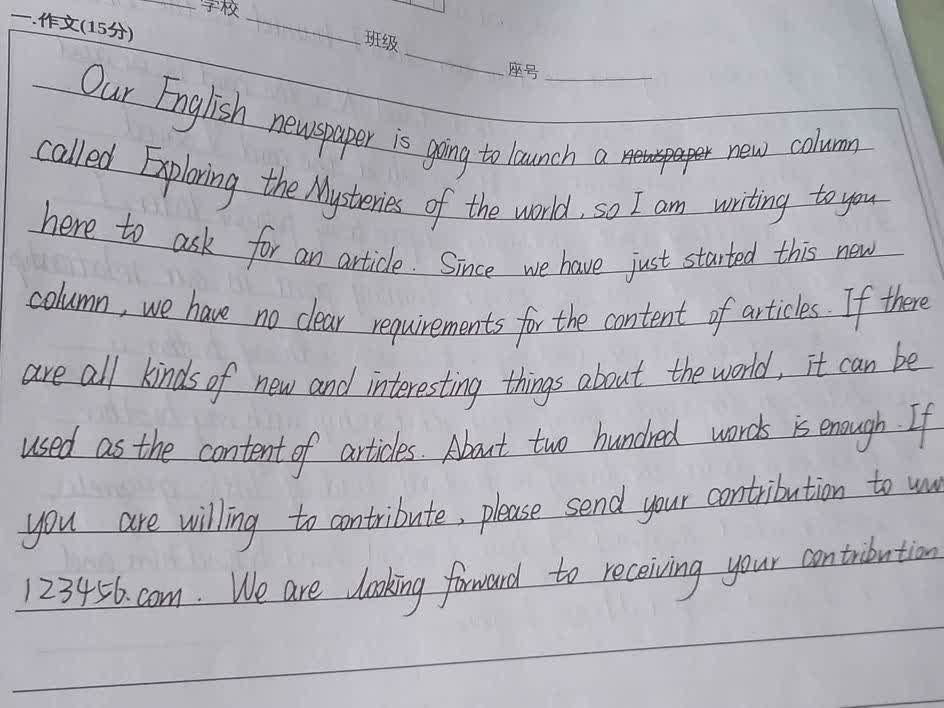 学校
班级
座号
一.作文(15分)
Our English newspaper is going to launch a newspaper new column
called Exploring the Mysteries of the world, so I am writing to you
here to ask for an article. Since we have just started this new
column, we have no clear requirements for the content of articles. If there
are all kinds of new and interesting things about the world, it can be
used as the content of articles. About two hundred words is enough. If
you are willing to contribute, please send your contribution to
123456.com. We are looking forward to receiving your contribution